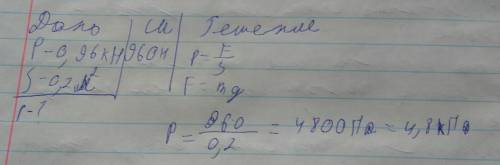 Дано СИ Решение
P-0,96кН 960Н p=F/S
S-0,2м² F=mg
p-?
P=960/0,2=4800Па=4,8кПа